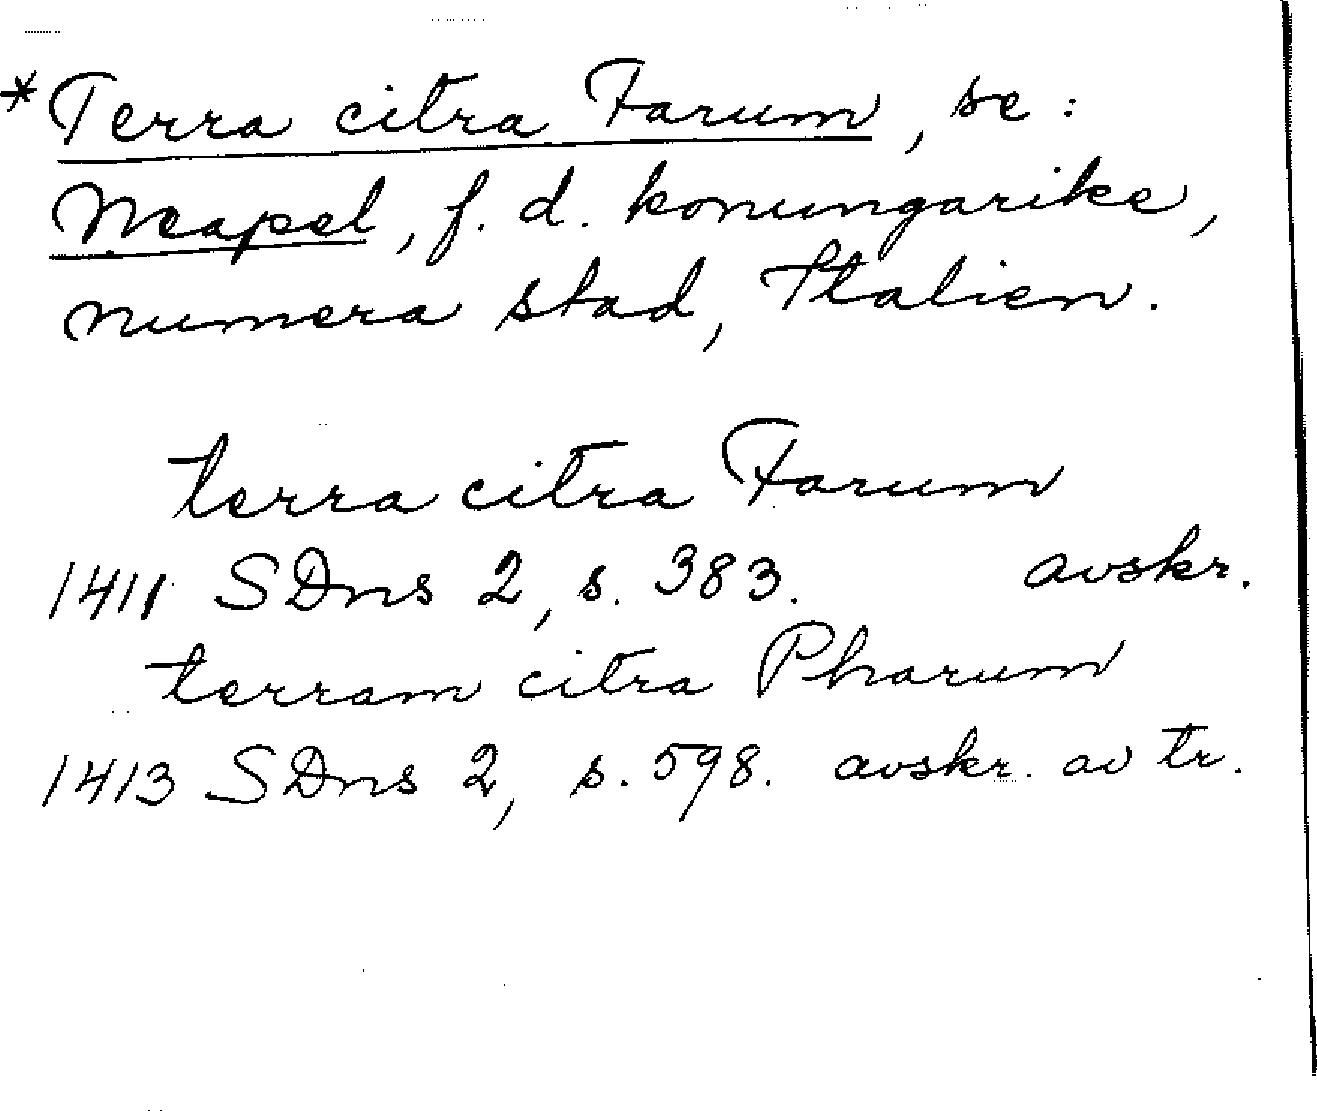 *Terra citra Farum, se:
Neapel, f. d. konungarike,
numera stad, Italien.
terra citra Farum
1411 SDns 2, s. 383. avskr.
terram citra Pharum
1413 SDns 2, s. 598. avskr. av tr.